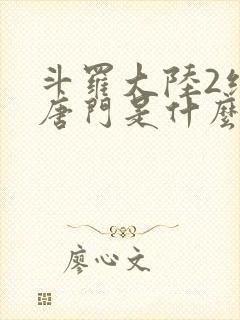 斗羅大陸2
唐門是什麼
廖心文